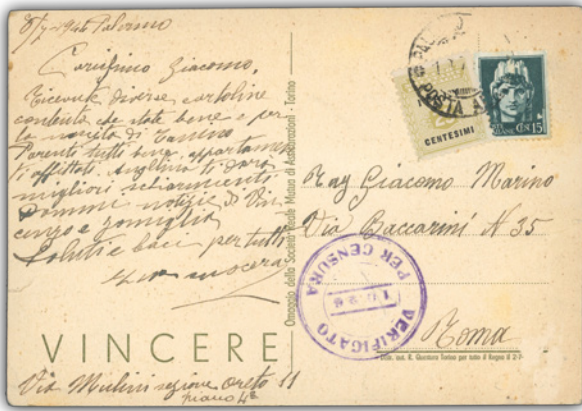 Palermo
Carissimo Giacomo,
Ricevute diverse cartoline
contenta che state bene e per
la nascita di
Parenti tutti bene, appartamen
affittati, Angelina ti darà
migliori schiarimenti
Dammi notizie di Vin
cenzo e famiglia
Saluti e baci per tutti
suocera
VINCERE
Via Mulini regione Oreto 11
piano 4º
Omaggio della Società Reale Mutua di Assicurazioni - Torino
CENTESIMI
POSTA
CENT 15
Rag Giacomo Marino
Via Baccarini N 35
Roma
VERIFICATO
PER CENSURA